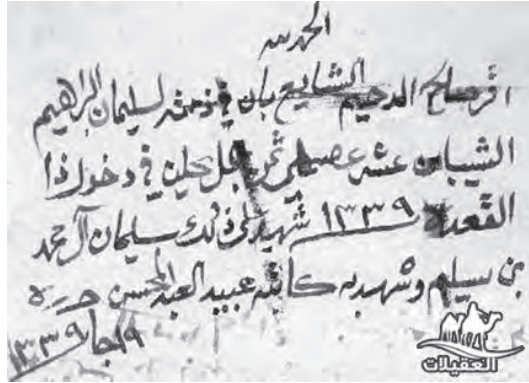 الحمد لله
اقر صالح الدحيم الشايع بان في ذمته لسليمان البراهيم
الشيبان عشر عصملي ثمن جمل يحلين في دخول ذا
القعدة ١٣٣٩ شهيد على ذلك سليمان آل محمد
بن سليم وشهد به كاتبه عبيد العبدالمحسن حرره
١٩ جا ١٣٣٩
العقيلات